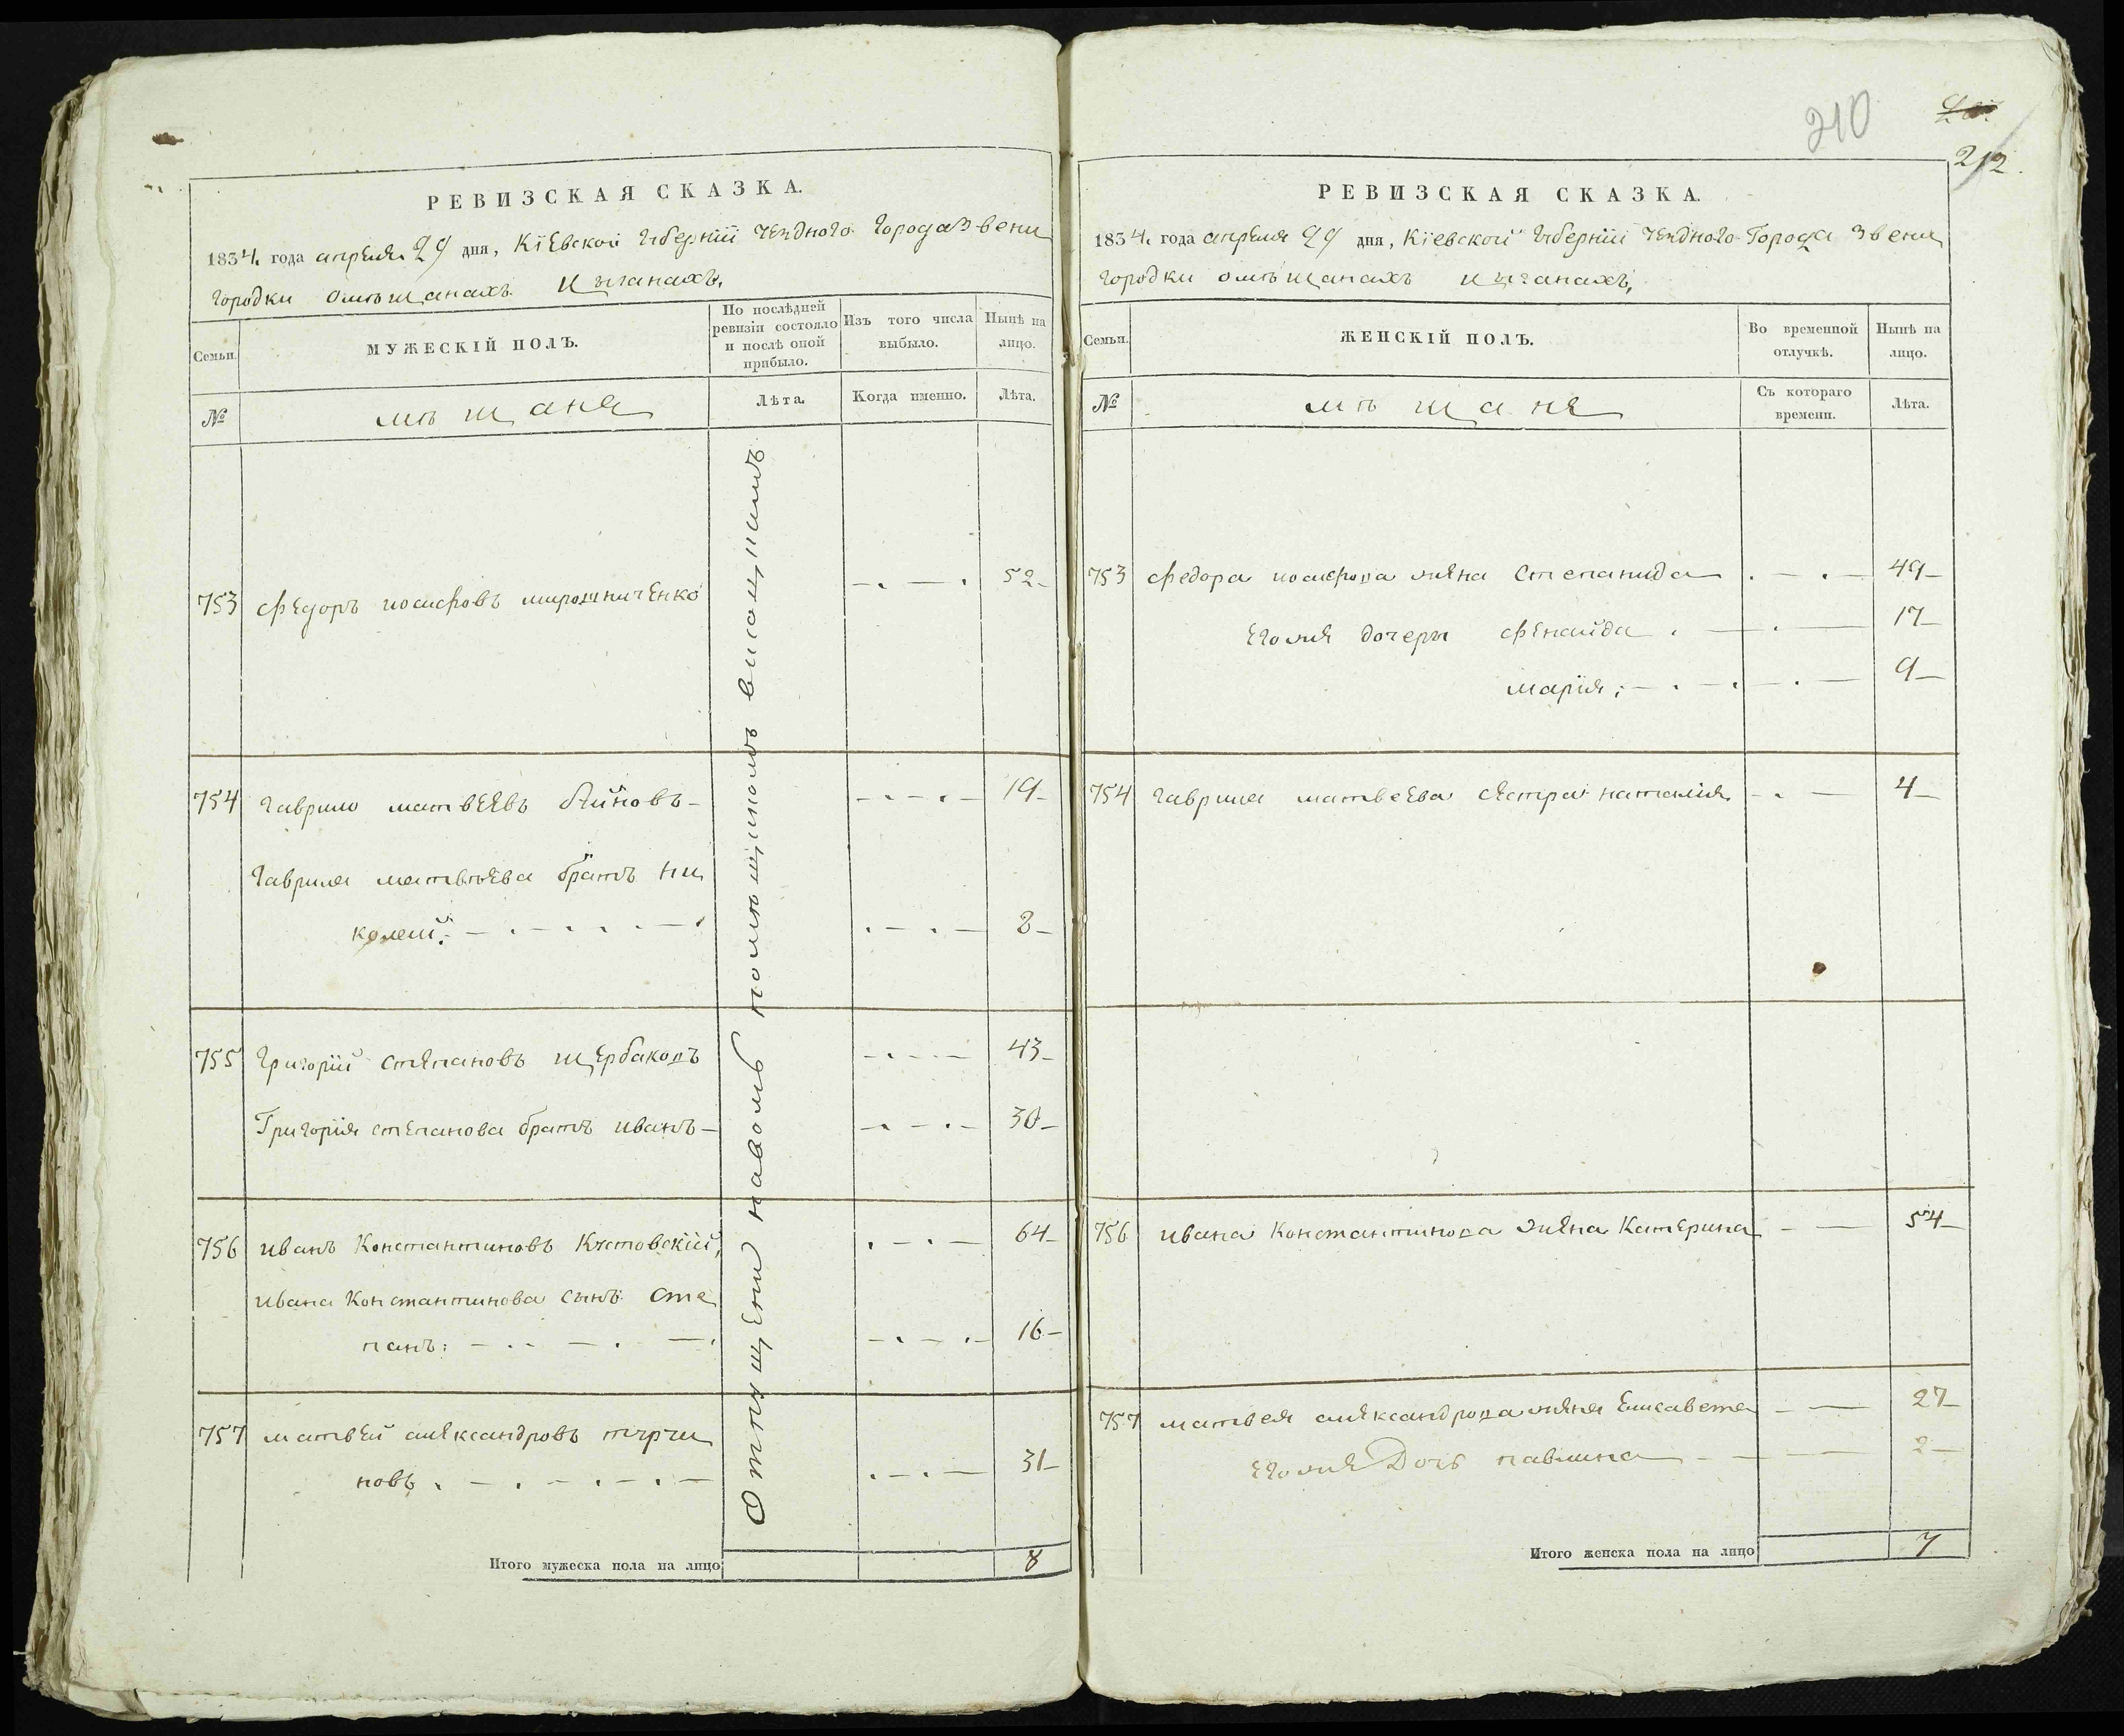 210
212.
РЕВИЗСКАЯ СКАЗКА.
1834. года апреля 29 дня, Кїевской губернїи уезднаго города Звени
городки омѣщанахъ ицыганахъ.
Семьи.
МУЖЕСКІЙ ПОЛЪ.
По послѣдней
ревизіи состояло
и послѣ оной
прибыло.
Изъ того числа
выбыло.
Нынѣ на
лицо.
№
мѣщане
Лѣта.
Когда именно.
Лѣта.
753 Федоръ иосифовъ мирошниченко 52
754 гаврило матвеевъ 19
гаврила матвѣева братъ ни
колай 2
755 Григорїй степановъ щербаковъ 43
Григорїя степанова братъ иванъ 30
756 иванъ Константиновъ Кустовскїй, 64
ивана Константинова сынъ сте
панъ: 16
757 матвей александровъ турчи
новъ 31
Итого мужеска пола на лицо 8
РЕВИЗСКАЯ СКАЗКА.
1834. года апреля 29 дня, Кїевской губернїи уезднаго города Звени
городки омѣщанахъ ицыганахъ,
Семьи.
ЖЕНСКІЙ ПОЛЪ.
Во временной
отлучкѣ.
Нынѣ на
лицо.
№
мѣщане
Съ котораго
времени.
Лѣта.
753 федора иосифова жена степанида 49
егожа дочери 17
марїя 9
754 гаврила матвеева сестра наталїя 4
756 ивана Константинова жена Катерина 54
757 матвея александрова жена Елисавета 27
егоже Дочь павлина 2
Итого женска пола на лицо 7